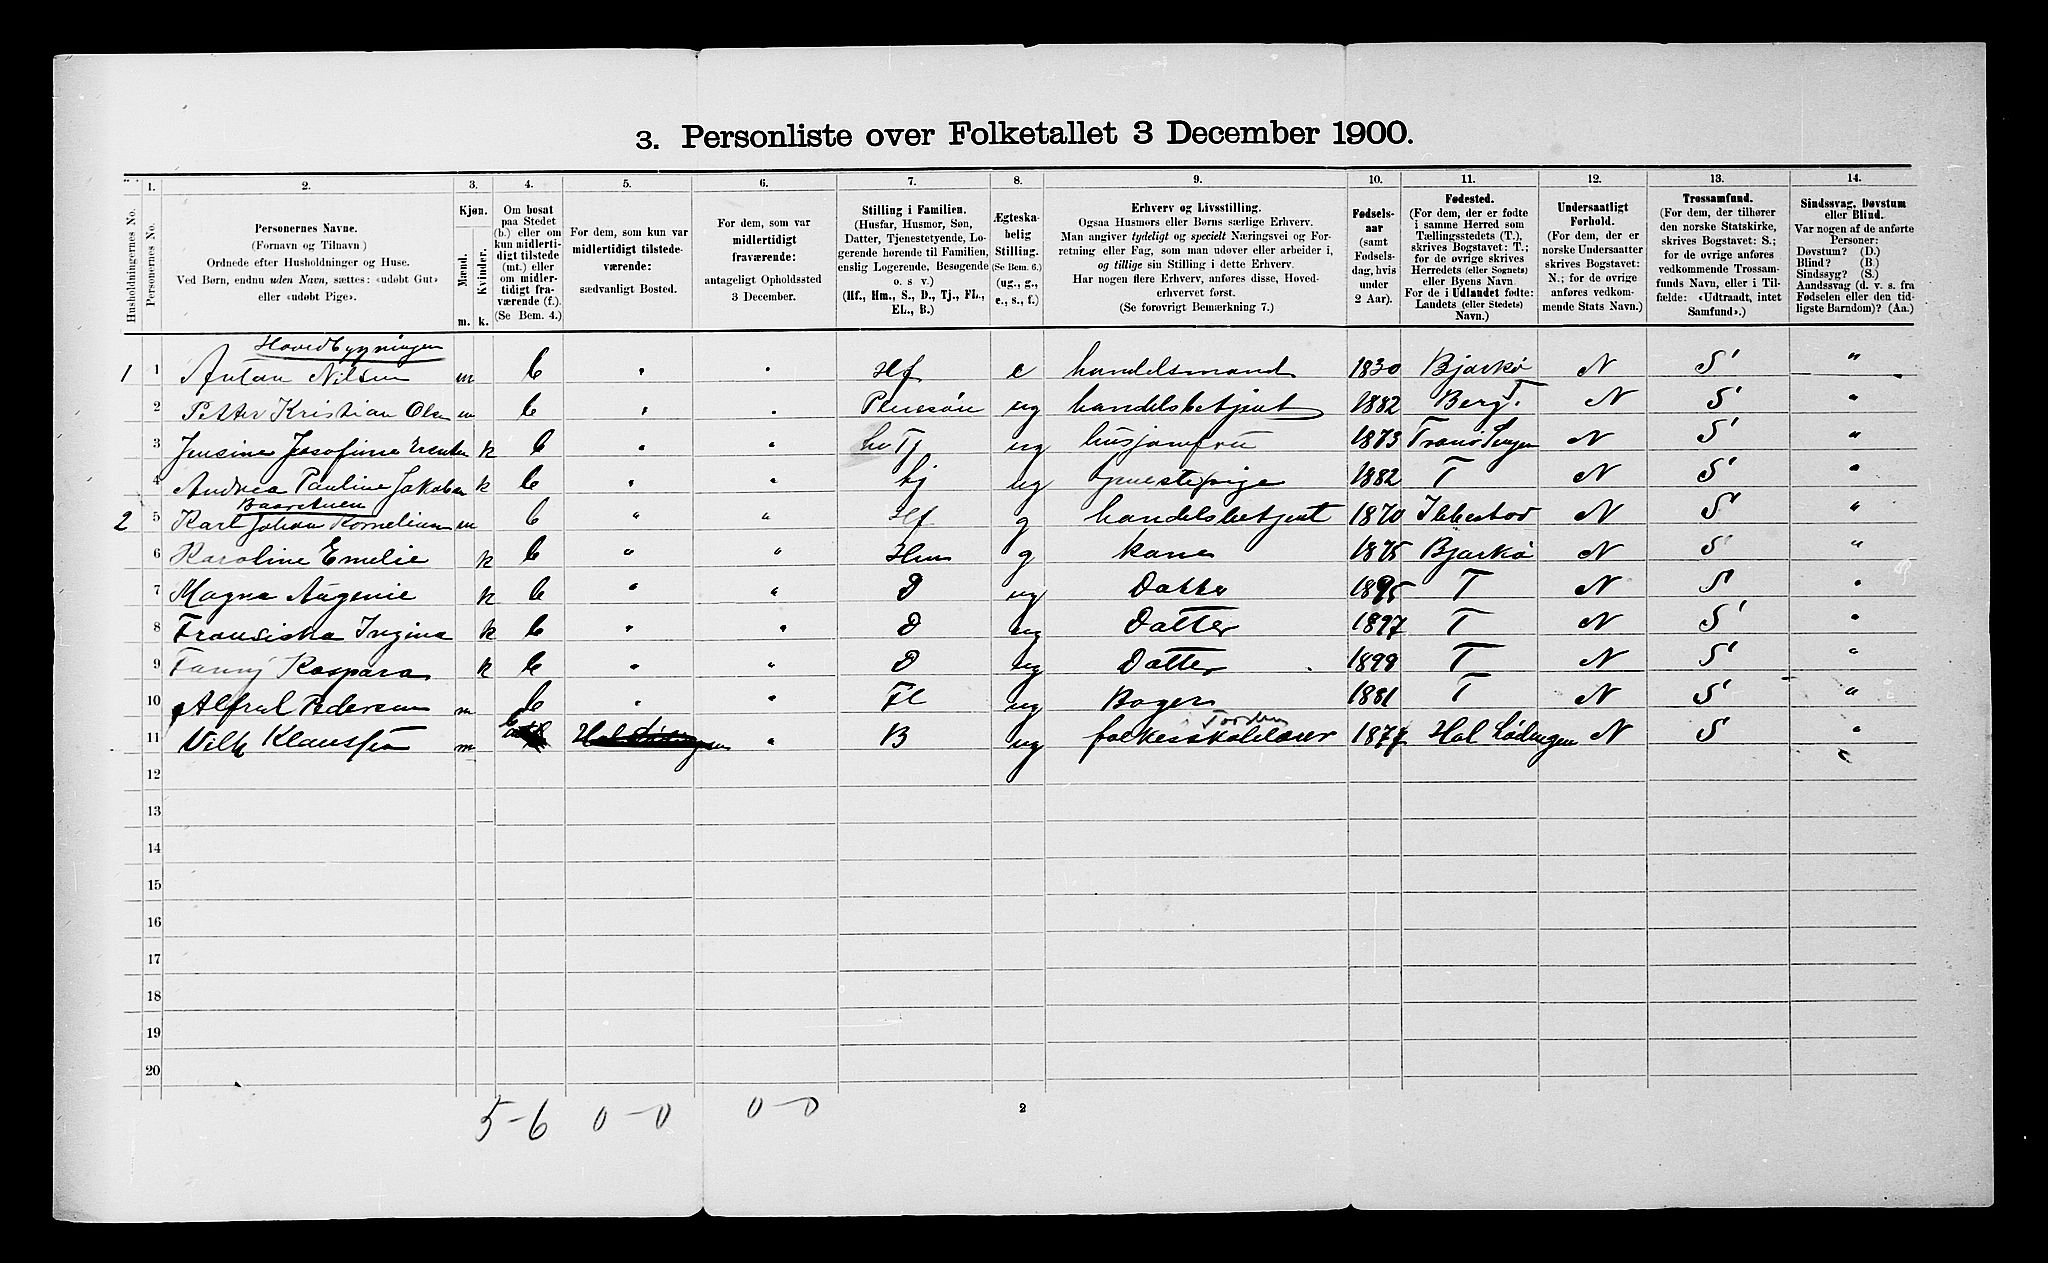 3. Personliste over Folketallet 3 December 1900.
Husholdningernes No.
1.
Personernes No.
2.
Personernes Navne.
(Fornavn og Tilnavn.)
Ordnede efter Husholdninger og Huse.
Ved Børn, endnu uden Navn, sættes: «udøbt Gut»
eller «udøbt Pige».
3.
Kjøn.
Mænd.
Kvinder.
m. k.
4.
Om bosat
paa Stedet
(b.) eller om
kun midlerti-
digt tilstede
(mt.) eller
om midler-
tidigt fra-
værende (f.)
(Se Bem. 4.)
5.
For dem, som kun var
midlertidigt tilstede-
værende:
sædvanligt Bosted.
6.
For dem, som var
midlertidigt
fraværende:
antageligt Opholdssted
3 December.
7.
Stilling i Familien.
(Husfar, Husmor, Søn,
Datter, Tjenestetyende, Lo-
gerende hørende til Familien,
enslig Logerende, Besøgende
o. s v.)
(Hf., Hm., S., D., Tj., FL.,
EL., B.)
8.
Ægteska-
belig
Stilling.
(Se Bem. 6.)
(ug., g.,
e., s., f.)
9.
Erhverv og Livsstilling.
Ogsaa Husmors eller Børns særlige Erhverv.
Man angiver tydeligt og specielt Næringsvei og For-
retning eller Fag, som man udøver eller arbeider i,
og tillige sin Stilling i dette Erhverv.
Har nogen flere Erhverv, anføres disse, Hoved-
erhvervet først.
(Se forøvrigt Bemærkning 7.)
10.
Fødsels-
aar
(samt
Fødsels-
dag, hvis
under
2 Aar).
11.
Fødested.
(For dem, der er fødte
i samme Herred som
Tællingsstedets (T.),
skrives Bogstavet: T.;
for de øvrige skrives
Herredets (eller Sognets)
eller Byens Navn.
For de i Udlandet fødte:
Landets (eller Stedets)
Navn.)
12.
Undersaatligt
Forhold.
(For dem, der er
norske Undersaatter
skrives Bogstavet:
N.; for de øvrige
anføres vedkom-
mende Stats Navn.)
13.
Trossamfund.
(For dem, der tilhører
den norske Statskirke,
skrives Bogstavet: S.;
for de øvrige anføres
vedkommende Trossam-
funds Navn, eller i Til-
fælde: «Udtraadt, intet
Samfund».)
14.
Sindssvag, Døvstum
eller Blind.
Var nogen af de anførte
Personer:
Døvstum? (D.)
Blind? (B.)
Sindssyg? (S.)
Aandssvag (d. v. s. fra
Fødselen eller den tid-
ligste Barndom)? (Aa.)
Hovedbygningen
1 1 Anton Nilsen m b " " Hf e handelsmand 1830 Bjarkø N S "
2 Petter Kristian Olsen m b " " Pleiesøn ug handelsbetjent 1882 Berg T. N S "
3 Jensine Josefine k b " " Tj ug husjomfru 1873 Tranø Senjen N S "
4 Andrea Pauline Jakobsen k b " " tj ug tjenestepige 1882 T N S "
Baarstuen
2 5 Karl Johan Kornelius m b " " Hf g handelsbetjent 1870 Ibbestad N S "
6 Karoline Emelie k b " " Hm g kone 1875 Bjarkø N S "
7 Magna Augenie k b " " D ug Datter 1895 T N S "
8 Fransiska Ingina k b " " D ug Datter 1897 T N S "
9 Fanny Kaspara k b " " D ug Datter 1899 T N S "
10 Alfred Pedersen m b " " Fl ug Bager 1881 T N S "
11 Vilh Klaussen m b " B ug folkeskolelærer 1877 Hol Lødingen N S "
12
13
14
15
16
17
18
19
20
5-6 0-0 0-0
2